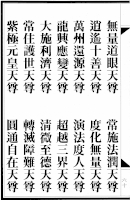 無量道眼天尊　常施法潤天尊
逍遙十善天尊　度化無量天尊
萬州還源天尊　演法度人天尊
龍興應變天尊　超越三界天尊
大施利濟天尊　清微至德天尊
常住護世天尊　轉滅障難天尊
紫極元皇天尊　圓通自在天尊